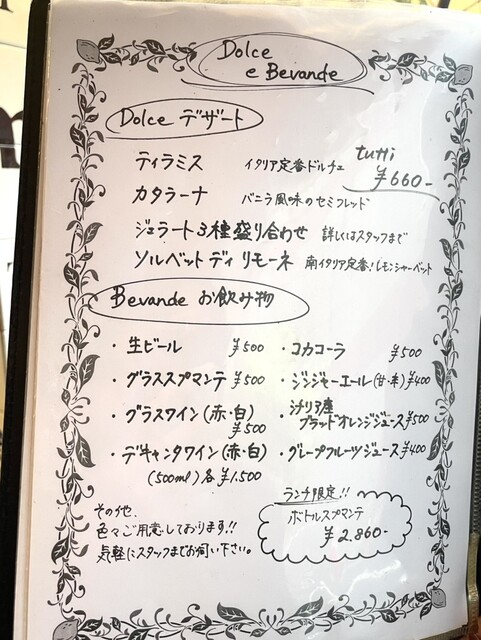 Dolce
e Bevande
Dolce デザート
tutti
¥660-
ティラミス イタリア定番ドルチェ
カタラーナ バニラ風味のセミフレッド
ジェラート3種盛り合わせ 詳しくはスタッフまで
ソルベット ディ リモーネ 南イタリア定番!レモンシャーベット
Bevande お飲み物
・生ビール ¥500
・グラススプマンテ ¥500
・グラスワイン(赤・白)
¥500
・デキャンタワイン(赤・白)
(500ml)各¥1.500
・コカコーラ ¥500
・ジンジャーエール(甘・辛)¥400
・シチリア産
ブラッドオレンジジュース¥500
・グレープフルーツジュース¥400
その他、
色々ご用意しております!!
気軽にスタッフまでお伺い下さい。
ランチ限定!!
ボトルスプマンテ
¥2.860-